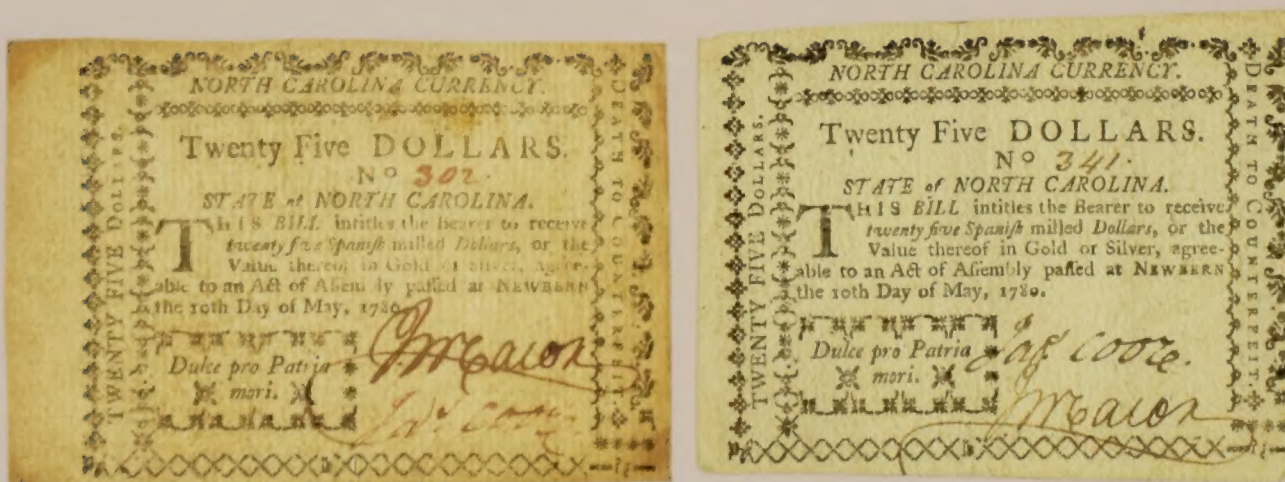 NORTH CAROLINA CURRENCY.
Twenty Five DOLLARS.
No 302.
STATE of NORTH CAROLINA.
THIS BILL intitles the Bearer to receive
twenty five Spaniſh milled Dollars, or the
Value thereof in Gold or Silver, agree-
able to an Act of Aſſembly paſſed at NEWBERN
the 10th Day of May, 1780.
Dulce pro Patria
mori.
JMacon
Jas Coor
TWENTY FIVE DOLLARS.
DEATH TO COUNTERFEIT.
NORTH CAROLINA CURRENCY.
Twenty Five DOLLARS.
No 341.
STATE of NORTH CAROLINA.
THIS BILL intitles the Bearer to receive
twenty five Spaniſh milled Dollars, or the
Value thereof in Gold or Silver, agree-
able to an Act of Aſſembly paſſed at NEWBERN
the 10th Day of May, 1780.
Dulce pro Patria
mori.
Jas Coor.
JMacon
TWENTY FIVE DOLLARS.
DEATH TO COUNTERFEIT.